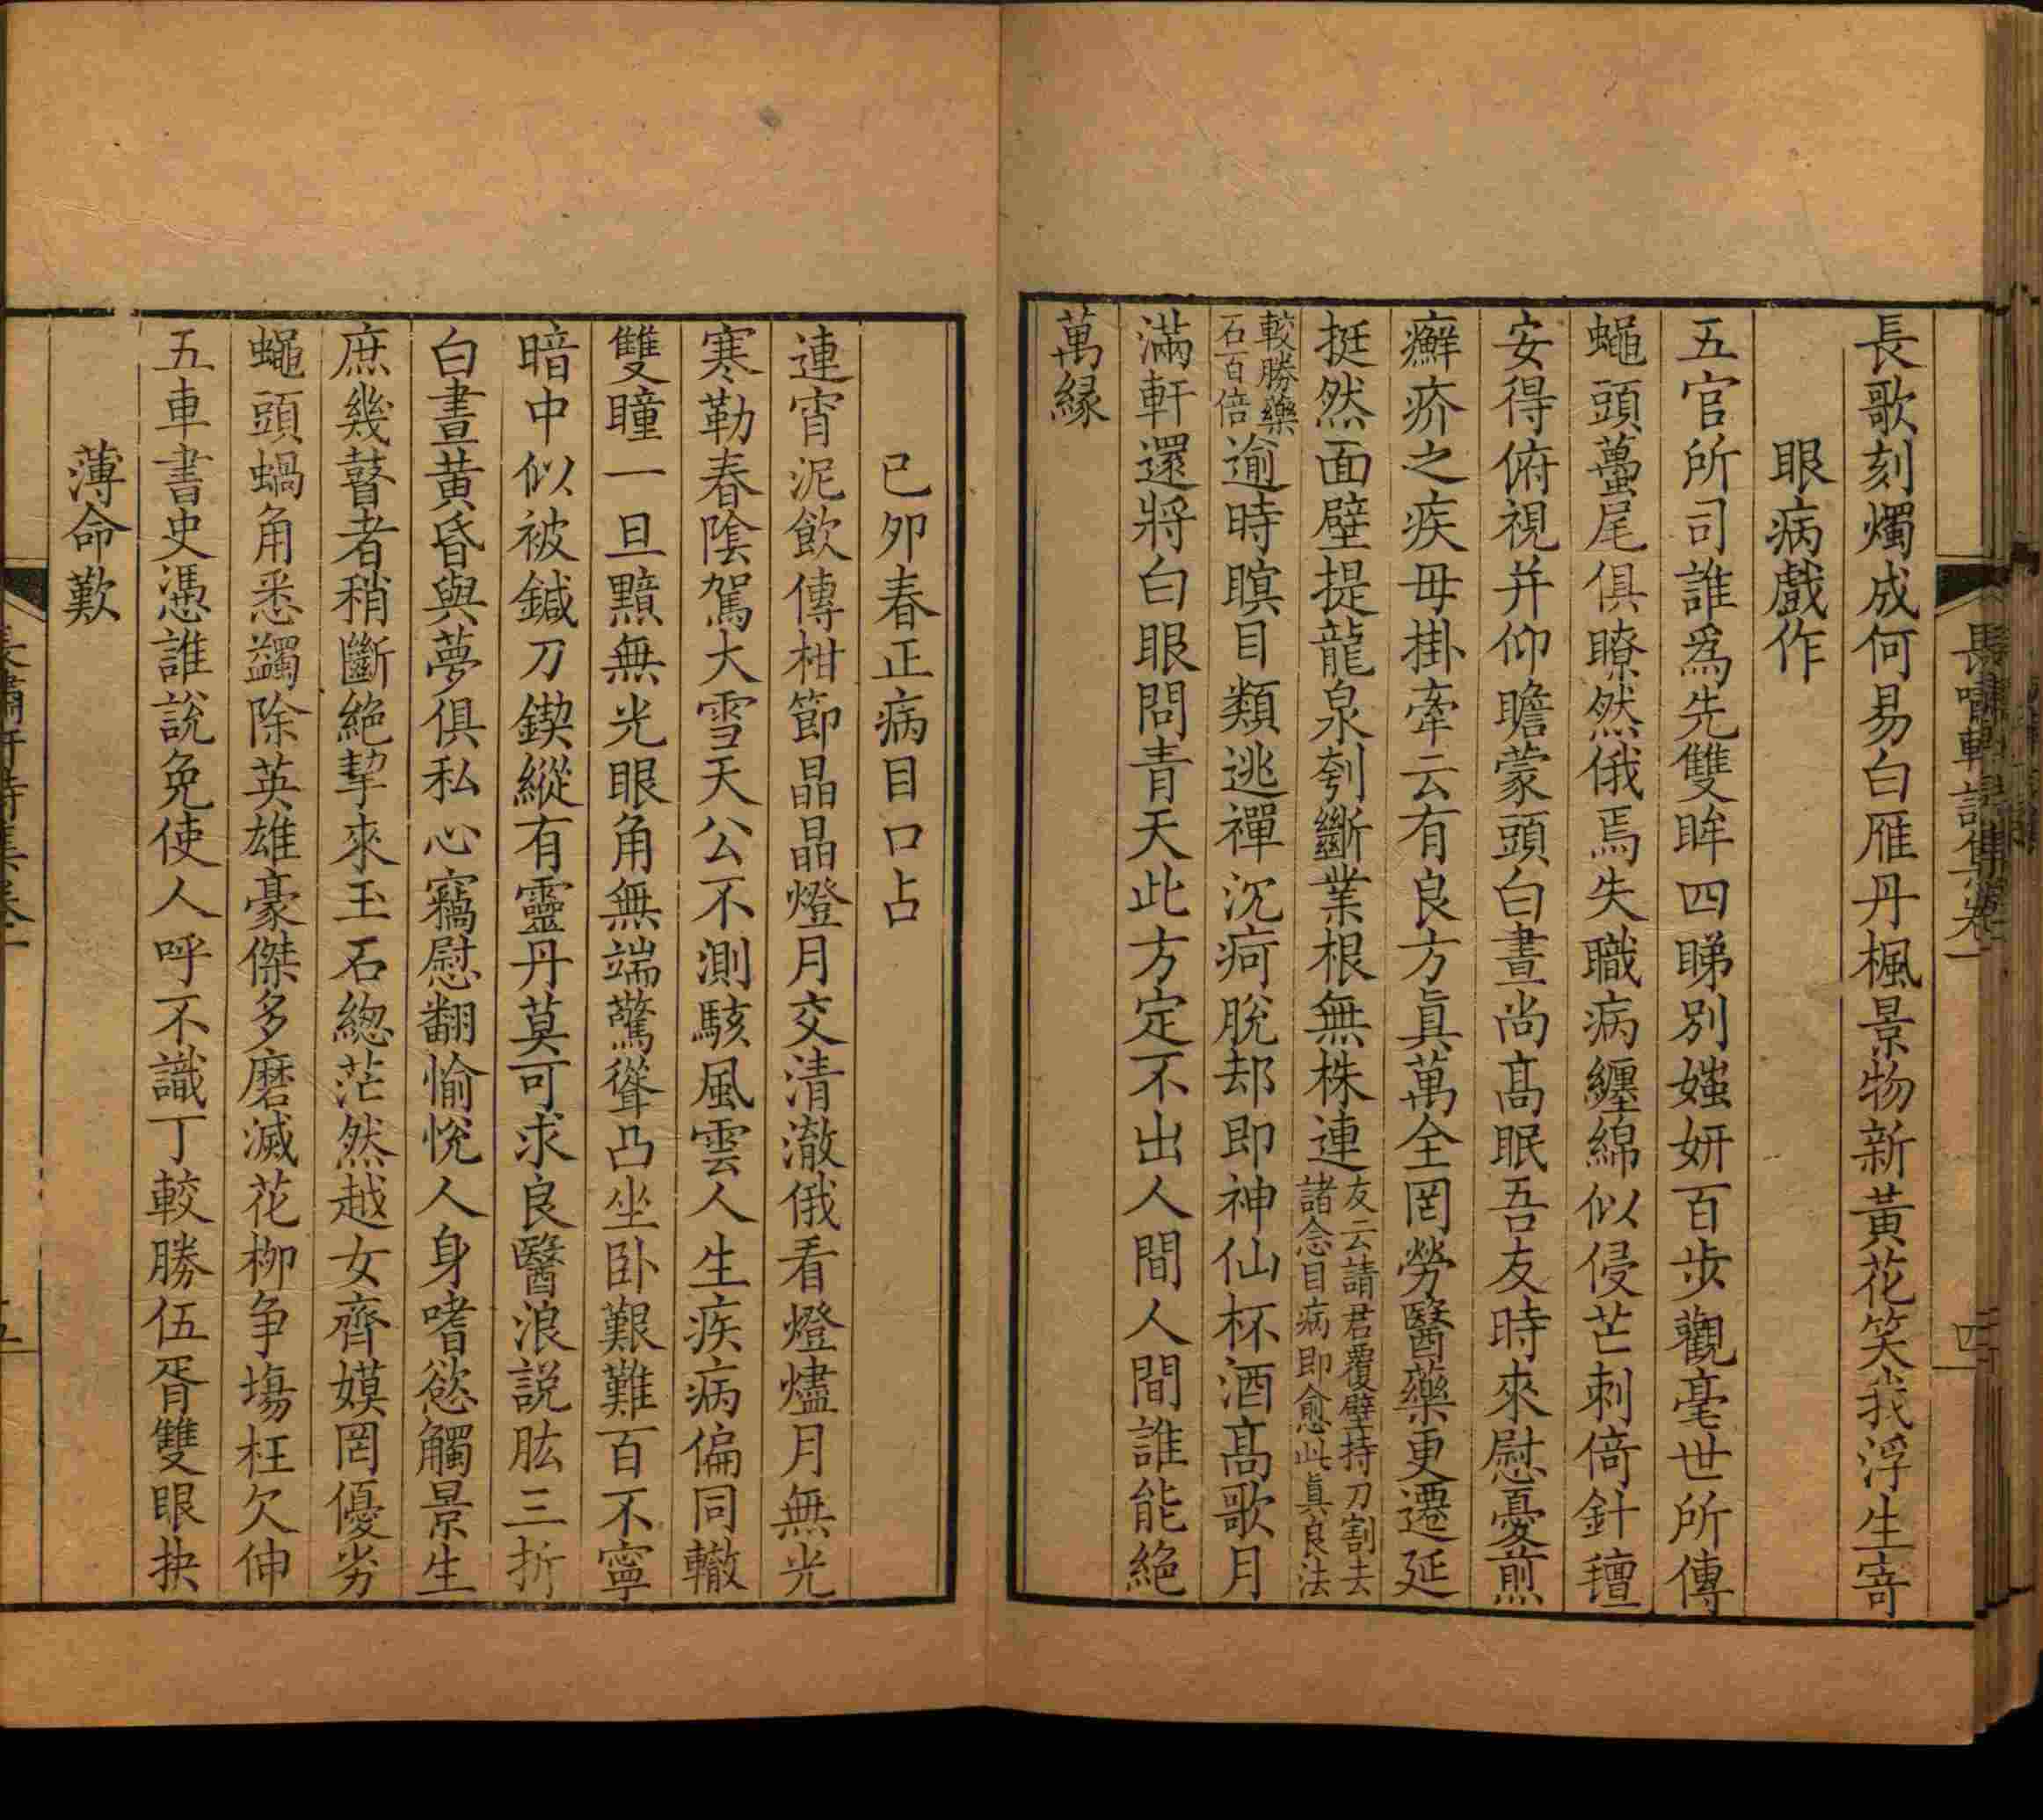 長嘯軒詩集卷一
四
長歌刻燭成何易白雁丹楓景物新黃花笑我浮生寄
眼病戲作
五官所司誰爲先雙眸四睇別媸妍百步觀毫世所傳
蠅頭蠆尾俱瞭然俄焉失職病纏綿似侵芒刺倚針氊
安得俯視并仰瞻蒙頭白晝尚高眠吾友時來慰憂煎
癬疥之疾毋掛牽云有良方眞萬全罔勞醫藥更遷延
挺然面壁提龍泉刳斷業根無株連友云請君覆壁持刀割去諸念目病即愈此眞良法
較勝藥石百倍逾時瞑目類逃禪沉疴脫却即神仙杯酒高歌月
滿軒還將白眼問青天此方定不出人間人間誰能絕
萬緣
己卯春正病目口占
連宵泥飲傳柑節晶晶燈月交清澈俄看燈燼月無光
寒勒春陰駕大雪天公不測駭風雲人生疾病偏同轍
雙瞳一旦黯無光眼角無端驚聳凸坐卧艱難百不寧
暗中似被鍼刀鍥縱有靈丹莫可求良醫浪説肱三折
白晝黃昏與夢俱私心竊慰翻愉悅人身嗜慾觸景生
庶幾瞽者稍斷絕挈來玉石總茫然越女齊嫫罔優劣
蠅頭蝸角悉蠲除英雄豪傑多磨滅花柳争塲枉欠伸
五車書史憑誰說免使人呼不識丁較勝伍胥雙眼抉
薄命歎
長嘯軒詩集卷一
五